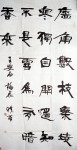 牆角數枝梅凌
寒獨自開遙知
不是雪為有暗
香來
王安石 梅花